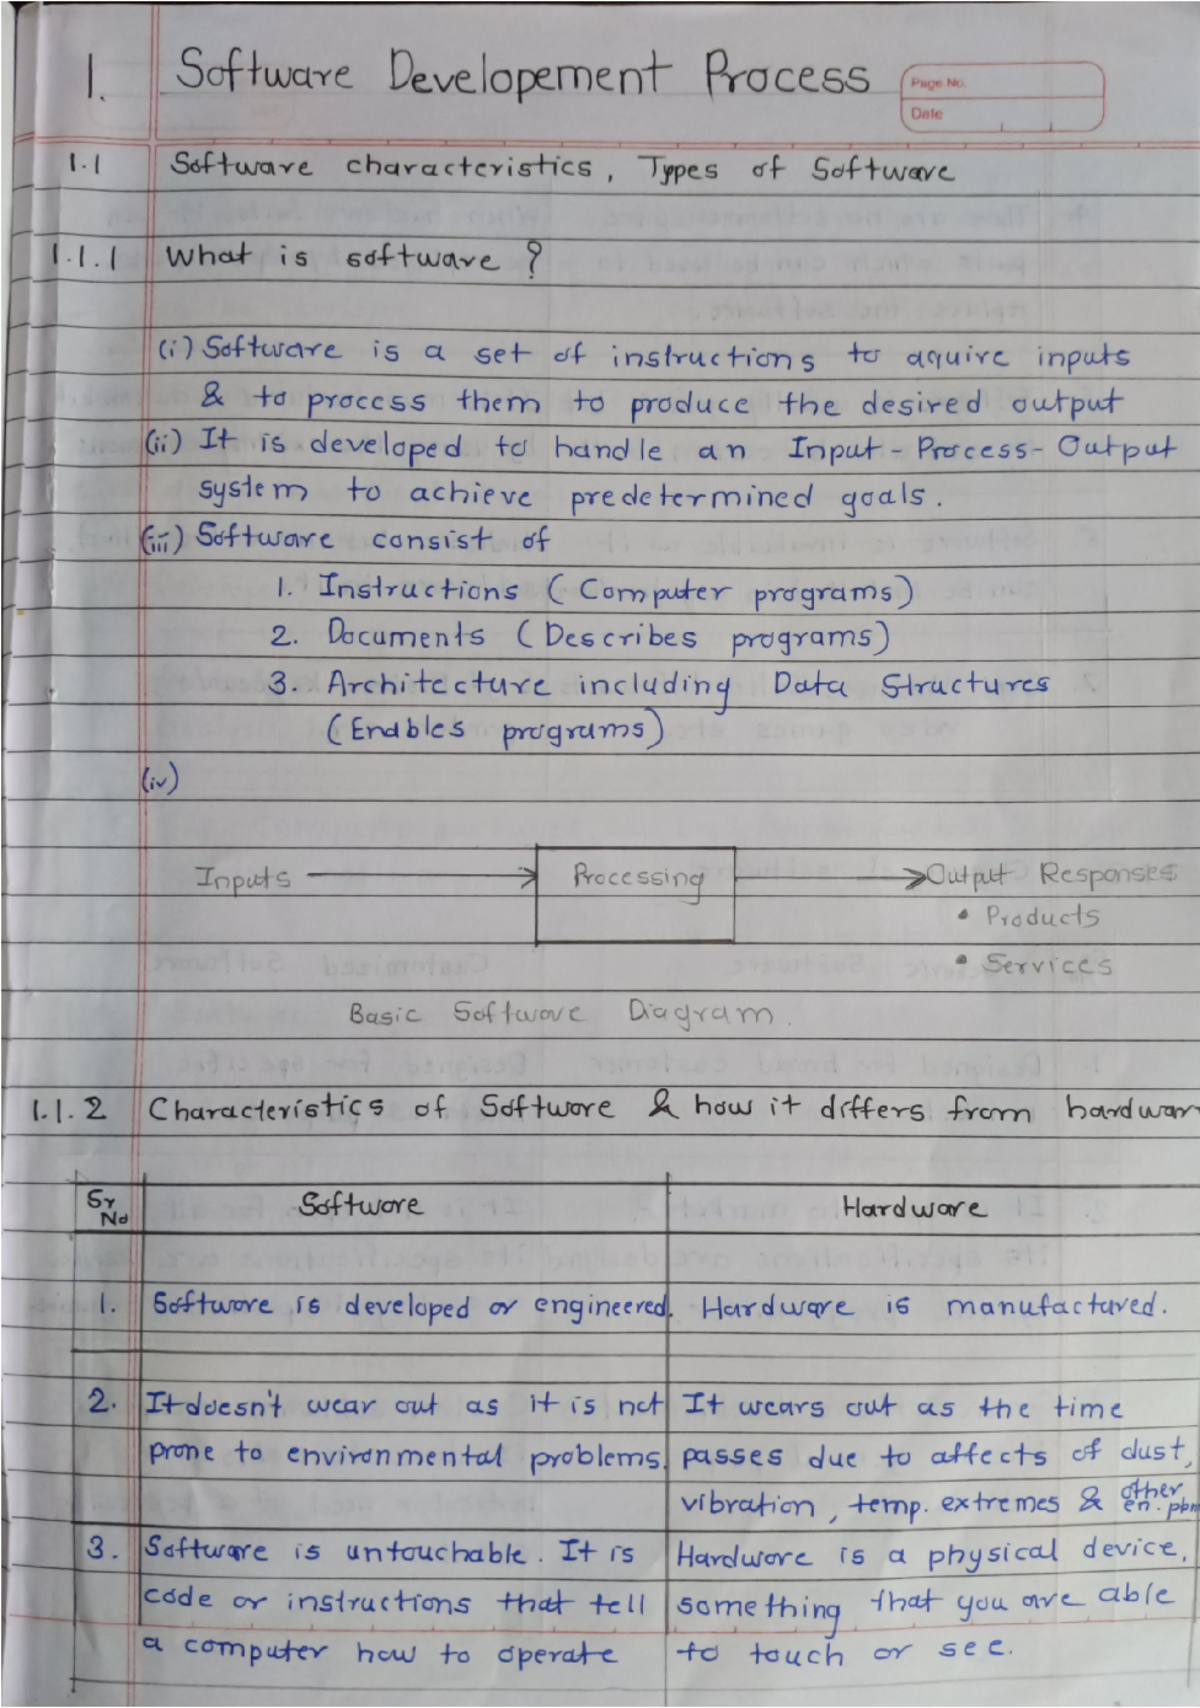 1. Software Developement Process
Page No.
Date
1.1 Software characteristics, Types of Software
1.1.1 What is software ?
(i) Software is a set of instructions to aquire inputs
& to process them to produce the desired output
(ii) It is developed to handle an Input - Process - Output
system to achieve predetermined goals.
(iii) Software consist of
1. Instructions (Computer programs)
2. Documents (Describes programs)
3. Architecture including Data Structures
(Enables programs)
(iv)
Inputs Processing Output Responses
• Products
• Services
Basic Software Diagram.
1.1.2 Characteristics of Software & how it differs from hardwar
Sr No Software Hardware
1. Software is developed or engineered. Hardware is manufactured.
2. It doesn't wear out as it is not It wears out as the time
prone to environmental problems. passes due to affects of dust,
vibration, temp. extremes & other en. pbm
3. Software is untouchable. It is Hardware is a physical device,
code or instructions that tell something that you are able
a computer how to operate to touch or see.